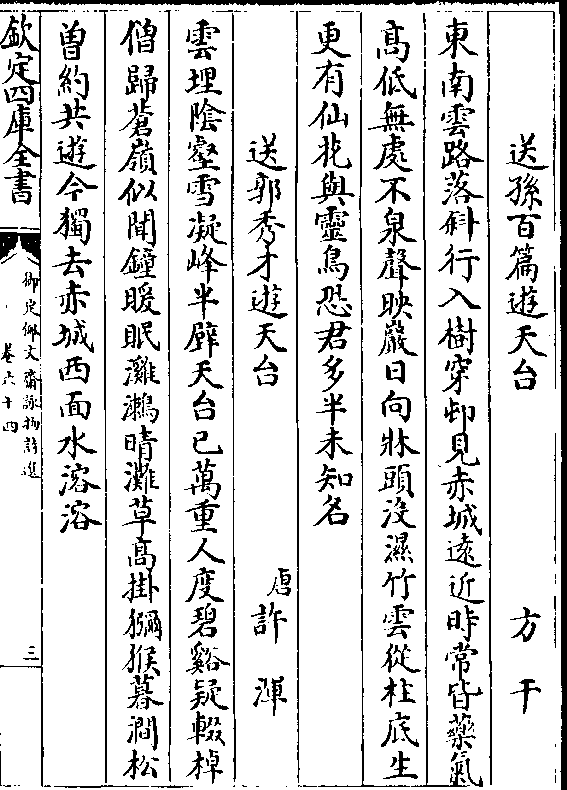 送孫百篇遊天台　方干
東南雲路落斜行入樹穿村見赤城遠近時常皆藥氣
高低無處不泉聲映巖日向牀頭沒濕竹雲從柱底生
更有仙花與靈鳥恐君多半未知名
送郭秀才遊天台　唐許渾
雲埋陰壑雪凝峰半壁天台已萬重人度碧谿疑輟棹
僧歸蒼嶺似聞鐘暖眠灘鷀晴灘草高掛獼猴暮澗松
曾約共遊今獨去赤城西面水溶溶
欽定四庫全書
御定佩文齋詠物詩選
卷六十四
三